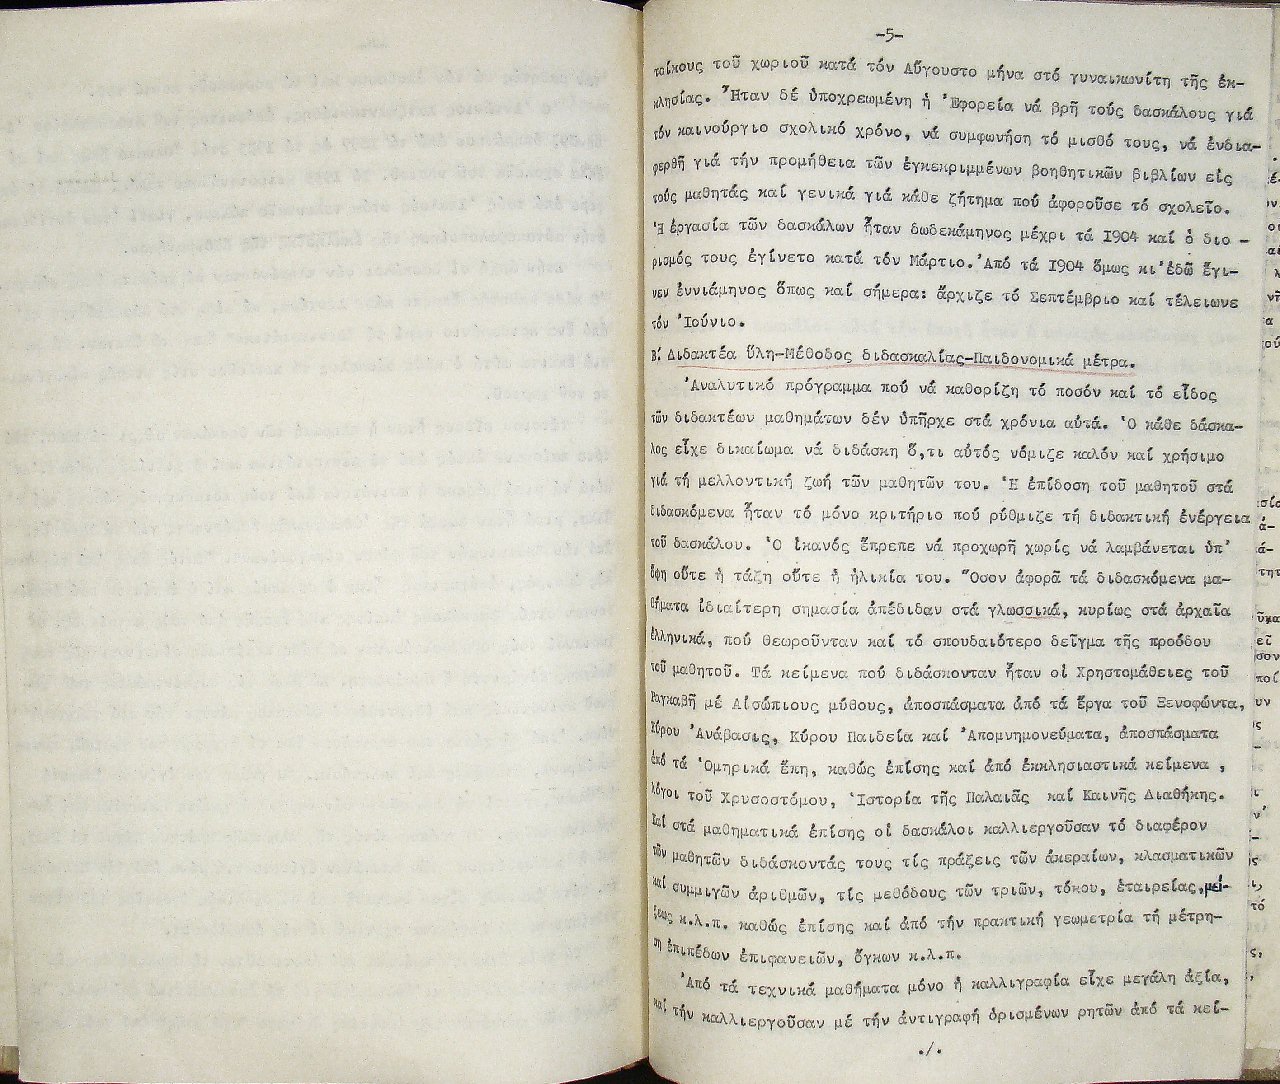 -5-
τοίκους τοῦ χωριοῦ κατά τόν Αὔγουστο μήνα στό γυναικωνίτη τῆς ἐκ-
κλησίας. Ἦταν δέ ὑποχρεωμένη ἡ Ἐφορεία νά βρῆ τούς δασκάλους γιά
τόν καινούργιο σχολικό χρόνο, νά συμφωνήση τό μισθό τους, νά ἐνδια-
φερθῆ γιά τήν προμήθεια τῶν ἐγκεκριμμένων βοηθητικῶν βιβλίων εἰς
τούς μαθητάς καί γενικά γιά κάθε ζήτημα πού ἀφοροῦσε τό σχολεῖο.
Ἡ ἐργασία τῶν δασκάλων ἦταν δωδεκάμηνος μέχρι τά 1904 καί ὁ διο -
ρισμός τους ἐγίνετο κατά τόν Μάρτιο. Ἀπό τά 1904 ὅμως κι' ἐδῶ ἔγι-
νεν ἐννιάμηνος ὅπως καί σήμερα: ἄρχιζε τό Σεπτέμβριο καί τέλειωνε
τόν Ἰούνιο.
Β΄ Διδακτέα ὕλη-Μέθοδος διδασκαλίας-Παιδονομικά μέτρα.
Ἀναλυτικό πρόγραμμα πού νά καθορίζη τό ποσόν καί τό εἶδος
τῶν διδακτέων μαθημάτων δέν ὑπῆρχε στά χρόνια αὐτά. Ὁ κάθε δάσκα-
λος εἶχε δικαίωμα νά διδάσκη ὅ,τι αὐτός νόμιζε καλόν καί χρήσιμο
γιά τή μελλοντική ζωή τῶν μαθητῶν του. Ἡ ἐπίδοση τοῦ μαθητοῦ στά
διδασκόμενα ἦταν τό μόνο κριτήριο πού ρύθμιζε τή διδακτική ἐνέργεια
τοῦ δασκάλου. Ὁ ἱκανός ἔπρεπε νά προχωρῆ χωρίς νά λαμβάνεται ὑπ'
ὄψη οὔτε ἡ τάξη οὔτε ἡ ἡλικία του. Ὅσον ἀφορᾶ τά διδασκόμενα μα-
θήματα ἰδιαίτερη σημασία ἀπέδιδαν στά γλωσσικά, κυρίως στά ἀρχαῖα
ἑλληνικά, πού θεωροῦνταν καί τό σπουδαιότερο δεῖγμα τῆς προόδου
τοῦ μαθητοῦ. Τά κείμενα πού διδάσκονταν ἦταν οἱ Χρηστομάθειες τοῦ
Ραγκαβῆ μέ Αἰσώπιους μύθους, ἀποσπάσματα ἀπό τά ἔργα τοῦ Ξενοφώντα,
Κύρου Ἀνάβασις, Κύρου Παιδεία καί Ἀπομνημονεύματα, ἀποσπάσματα
ἀπό τά Ὁμηρικά ἔπη, καθώς ἐπίσης καί ἀπό ἐκκλησιαστικά κείμενα ,
λόγοι τοῦ Χρυσοστόμου, Ἱστορία τῆς Παλαιᾶς καί Καινῆς Διαθήκης.
Καί στά μαθηματικά ἐπίσης οἱ δασκάλοι καλλιεργοῦσαν τό διαφέρον
τῶν μαθητῶν διδάσκοντάς τους τίς πράξεις τῶν ἀκεραίων, κλασματικῶν
καί συμμιγῶν ἀριθμῶν, τίς μεθόδους τῶν τριῶν, τόκου, ἑταιρείας, μεί-
ξεως κ.λ.π. καθώς ἐπίσης καί ἀπό τήν πρακτική γεωμετρία τή μέτρη-
ση ἐπιπέδων ἐπιφανειῶν, ὄγκων κ.λ.π.
Ἀπό τά τεχνικά μαθήματα μόνο ἡ καλλιγραφία εἶχε μεγάλη ἀξία,
καί τήν καλλιεργοῦσαν μέ τήν ἀντιγραφή ὁρισμένων ρητῶν ἀπό τά κεί-
./.